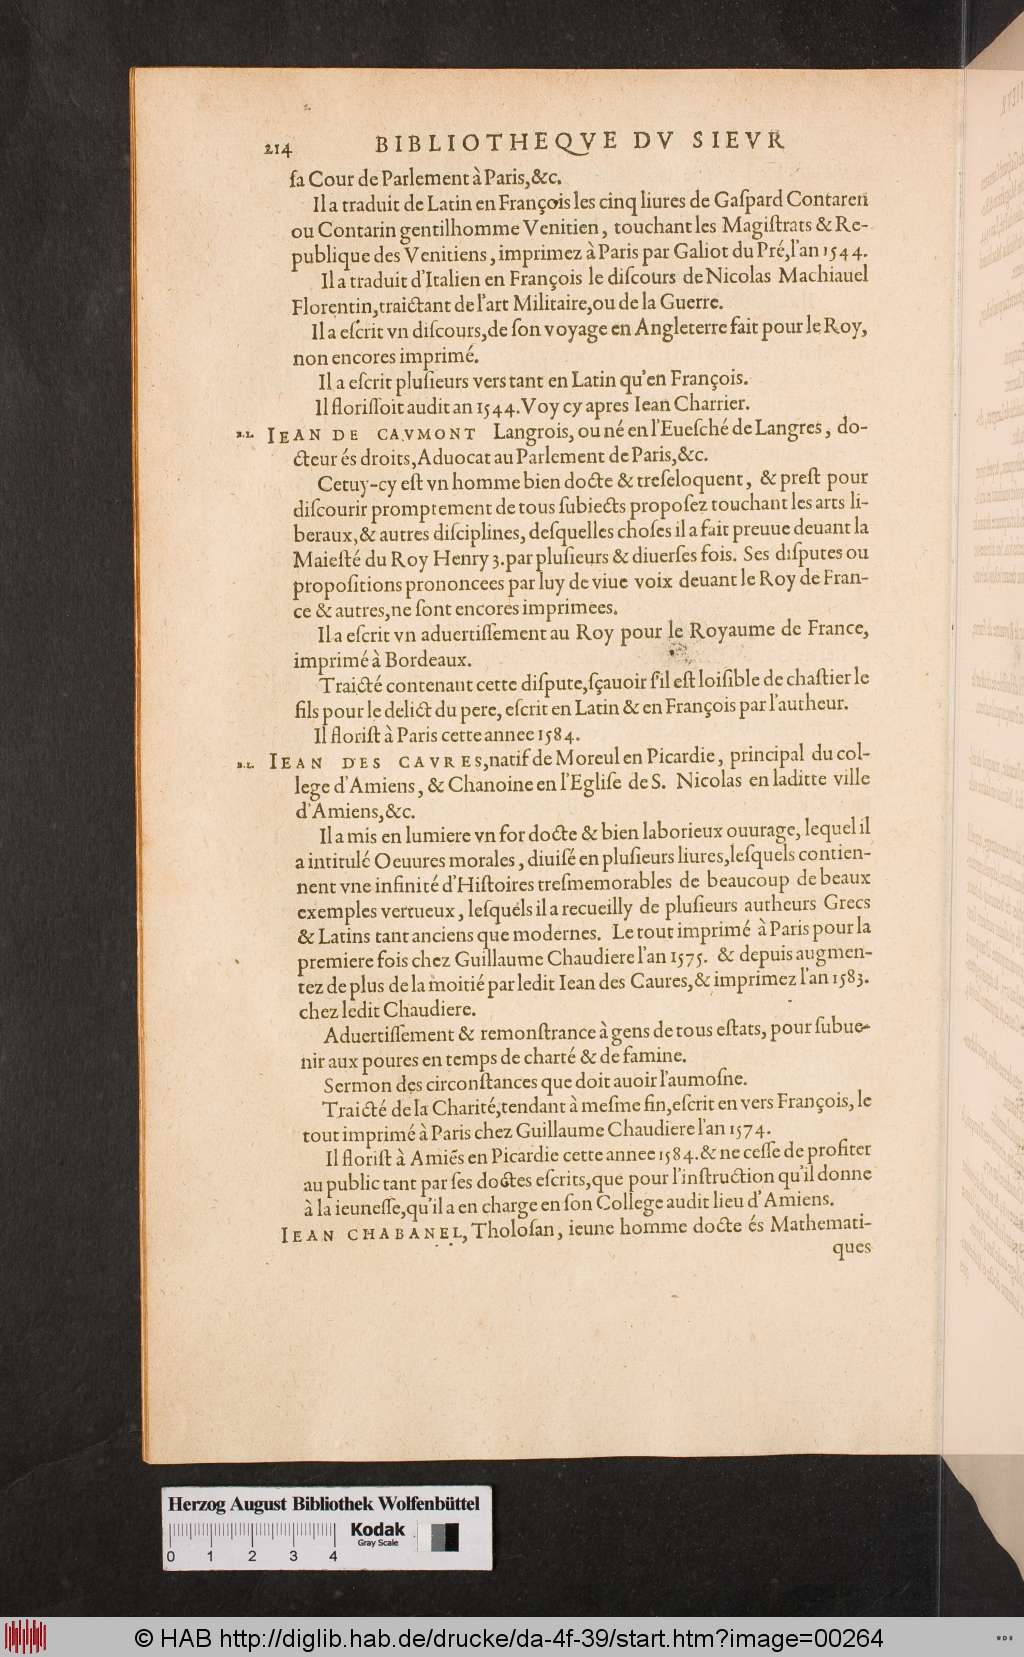 214 BIBLIOTHEQVE DV SIEVR
ſa Cour de Parlement à Paris,&c.
Il a traduit de Latin en François les cinq liures de Gaſpard Contaren
ou Contarin gentilhomme Venitien, touchant les Magiſtrats & Re-
publique des Venitiens, imprimez à Paris par Galiot du Pré,l'an 1544.
Il a traduit d'Italien en François le diſcours de Nicolas Machiauel
Florentin,traictant de l'art Militaire,ou de la Guerre.
Il a eſcrit vn diſcours,de ſon voyage en Angleterre fait pour le Roy,
non encores imprimé.
Il a eſcrit pluſieurs vers tant en Latin qu'en François.
Il floriſſoit audit an 1544.Voy cy apres Iean Charrier.
B.L. IEAN DE CAVMONT Langrois, ou né en l'Eueſché de Langres, do-
cteur és droits,Aduocat au Parlement de Paris,&c.
Cetuy-cy eſt vn homme bien docte & treſeloquent, & preſt pour
diſcourir promptement de tous ſubiects propoſez touchant les arts li-
beraux,& autres diſciplines, deſquelles choſes il a fait preuue deuant la
Maieſté du Roy Henry 3.par pluſieurs & diuerſes fois. Ses diſputes ou
propoſitions prononcees par luy de viue voix deuant le Roy de Fran-
ce & autres,ne ſont encores imprimees.
Il a eſcrit vn aduertiſſement au Roy pour le Royaume de France,
imprimé à Bordeaux.
Traicté contenant cette diſpute,ſçauoir ſ'il eſt loiſible de chaſtier le
fils pour le delict du pere, eſcrit en Latin & en François par l'autheur.
Il floriſt à Paris cette annee 1584.
B.L. IEAN DES CAVRES,natif de Moreul en Picardie, principal du col-
lege d'Amiens, & Chanoine en l'Egliſe de S. Nicolas en laditte ville
d'Amiens,&c.
Il a mis en lumiere vn for docte & bien laborieux ouurage, lequel il
a intitulé Oeuures morales, diuiſé en pluſieurs liures,leſquels contien-
nent vne infinité d'Hiſtoires treſmemorables de beaucoup de beaux
exemples vertueux, leſquels il a recueilly de pluſieurs autheurs Grecs
& Latins tant anciens que modernes. Le tout imprimé à Paris pour la
premiere fois chez Guillaume Chaudiere l'an 1575. & depuis augmen-
tez de plus de la moitié par ledit Iean des Caures,& imprimez l'an 1583.
chez ledit Chaudiere.
Aduertiſſement & remonſtrance à gens de tous eſtats, pour ſubue-
nir aux poures en temps de charté & de famine.
Sermon des circonſtances que doit auoir l'aumoſne.
Traicté de la Charité,tendant à meſme fin,eſcrit en vers François, le
tout imprimé à Paris chez Guillaume Chaudiere l'an 1574.
Il floriſt à Amiés en Picardie cette annee 1584.& ne ceſſe de profiter
au public tant par ſes doctes eſcrits,que pour l'inſtruction qu'il donne
à la ieuneſſe,qu'il a en charge en ſon College audit lieu d'Amiens.
IEAN CHABANEL, Tholoſan, ieune homme docte és Mathemati-
ques
Herzog August Bibliothek Wolfenbüttel
Kodak
Gray Scale
0 1 2 3 4
© HAB http://diglib.hab.de/drucke/da-4f-39/start.htm?image=00264